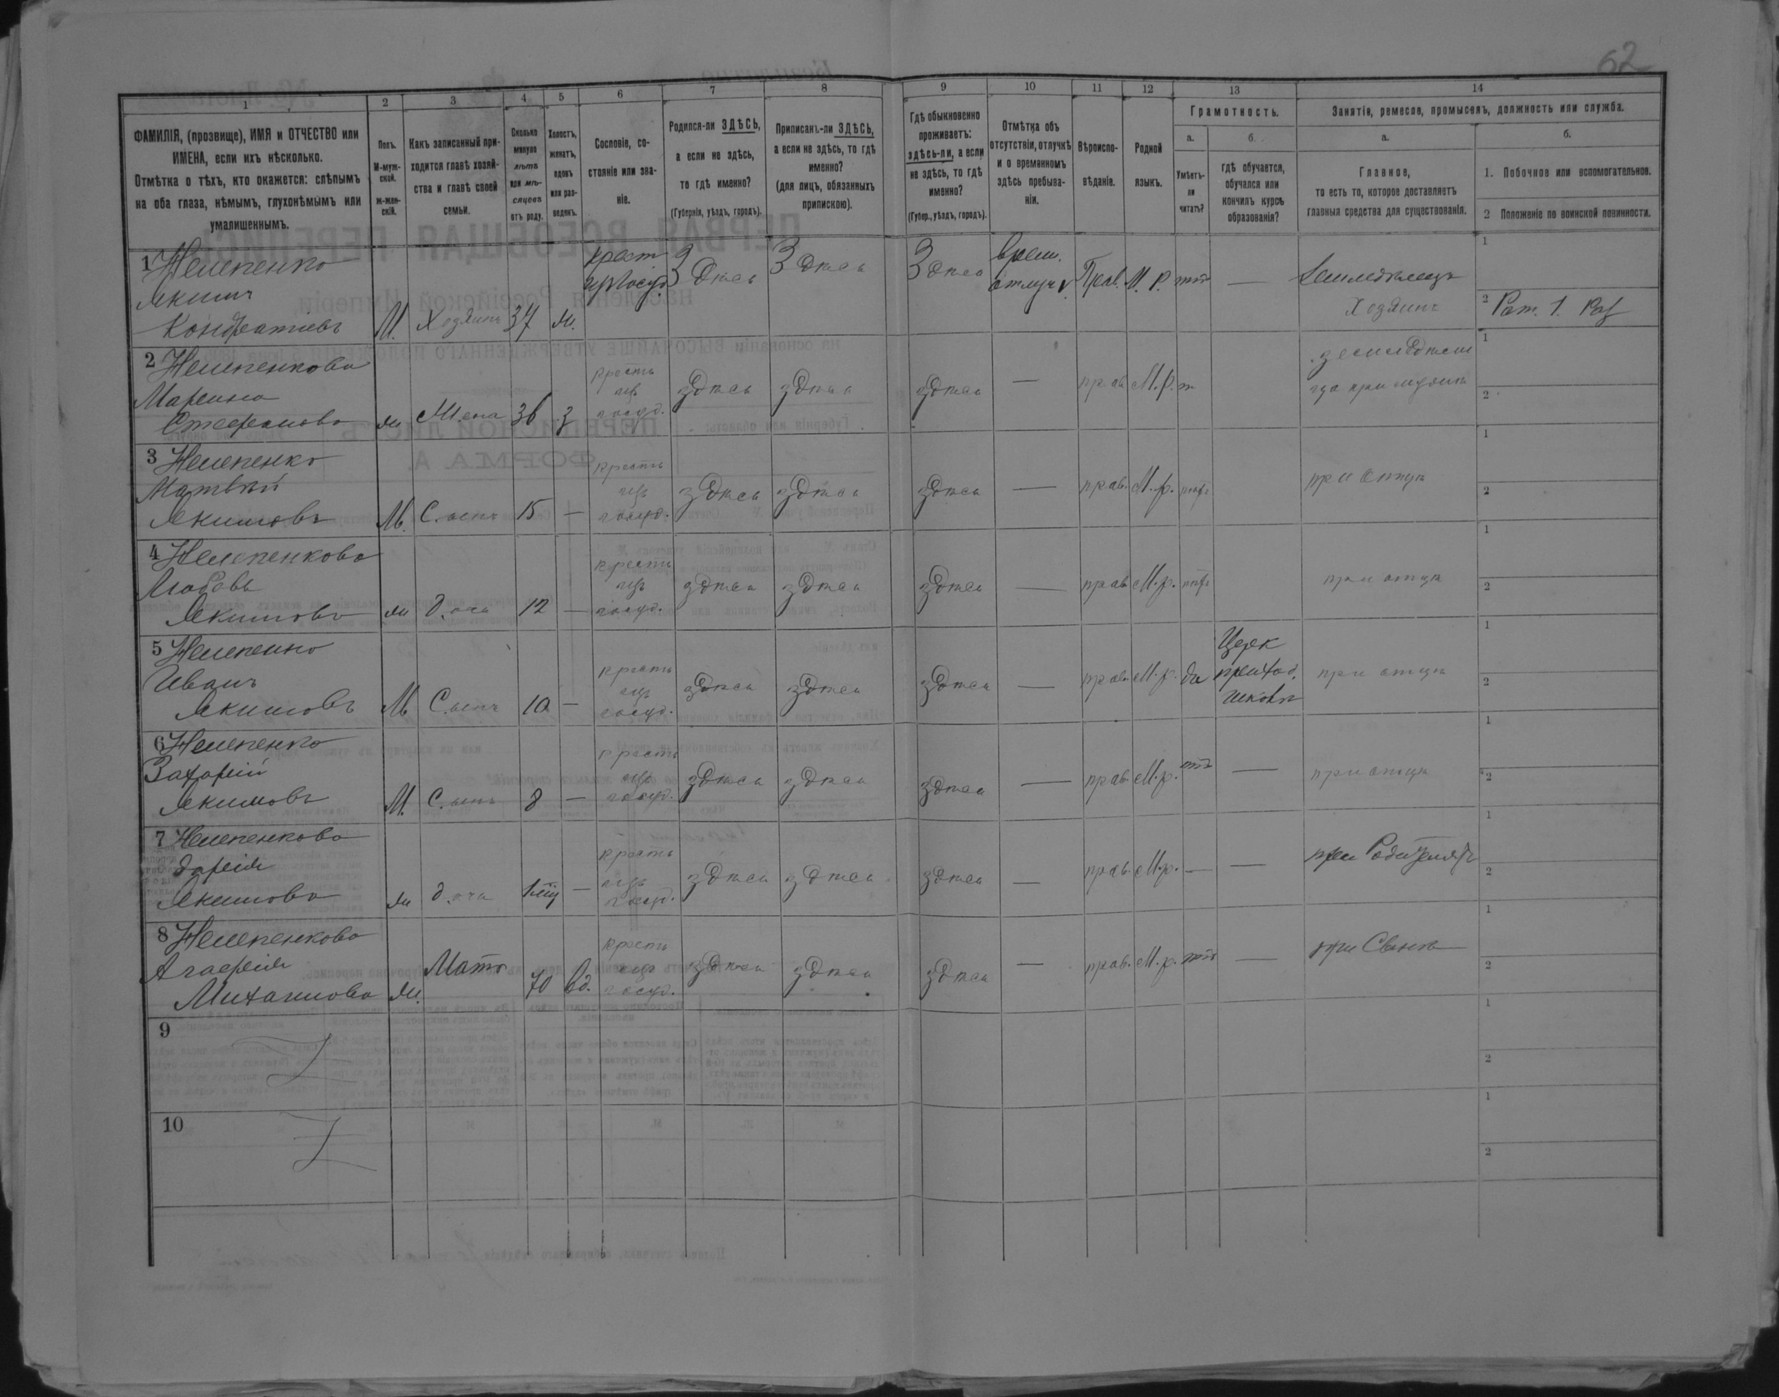 62
1
2
3
4
5
6
7
8
9
10
11
12
13
14
ФАМИЛІЯ, (прозвище), ИМЯ и ОТЧЕСТВО или
ИМЕНА, если ихъ нѣсколько.
Отмѣтка о тѣхъ, кто окажется: слѣпымъ
на оба глаза, нѣмымъ, глухонѣмымъ или
умалишеннымъ.
Полъ.
М-муж-
ской.
ж-жен-
скій.
Какъ записанный при-
ходится главѣ хозяй-
ства и главѣ своей
семьи.
Сколько
минуло
лѣтъ
или мѣ-
сяцевъ
отъ роду.
Холостъ,
женатъ,
вдовъ
или раз-
веденъ.
Сословіе, со-
стояніе или зва-
ніе.
Родился-ли ЗДѢСЬ,
а если не здѣсь,
то гдѣ именно?
(Губернія, уѣздъ, городъ).
Приписанъ-ли ЗДѢСЬ,
а если не здѣсь, то гдѣ
именно?
(для лицъ, обязанныхъ
припискою).
Гдѣ обыкновенно
проживаетъ:
здѣсь-ли, а если
не здѣсь, то гдѣ
именно?
(Губер., уѣздъ, городъ).
Отмѣтка объ
отсутствіи, отлучкѣ
и о временномъ
здѣсь пребыва-
ніи.
Вѣроиспо-
вѣданіе.
Родной
языкъ.
Грамотность.
а.
Умѣетъ-
ли
читать?
б.
гдѣ обучается,
обучался или
кончилъ курсъ
образованія?
Занятіе, ремесло, промыселъ, должность или служба.
а.
Главное,
то есть то, которое доставляетъ
главныя средства для существованія.
б.
1. Побочное или вспомогательное.
2 Положеніе по воинской повинности.
1
Якимъ
Кондратіевъ
М.
Хозяинъ
37
Ж.
крест.
Здѣсь
Здѣсь
Здѣсь
Врем.
отлуч.
Прав.
М. Р.
нѣтъ
—
Земледѣлецъ
Хозяинъ
1
2
Рат. 1. Раз
2
Марина
Стефанова
ж
Жена
36
з
крестъ
изъ
госуд.
здѣсь
здѣсь
здѣсь
—
прав.
М.р.
при мужѣ
1
2
3
Матвѣй
Якимовъ
М.
Сынъ
15
—
крестъ
изъ
госуд.
здѣсь
здѣсь
здѣсь
—
прав.
М.р.
при отцѣ
1
2
4
Любовь
Якимова
ж
дочь
12
—
крестъ
изъ
госуд.
здѣсь
здѣсь
здѣсь
—
прав.
М.р.
при отцѣ
1
2
5
Иванъ
Якимовъ
М
Сынъ
10
—
крестъ
изъ
госуд.
здѣсь
здѣсь
здѣсь
—
прав.
М.р.
да
Церк
приход.
школѣ
при отцѣ
1
2
6
Захарій
Якимовъ
М.
Сынъ
8
—
крестъ
изъ
госуд.
здѣсь
здѣсь
здѣсь
—
прав.
М.р.
нѣтъ
—
при отцѣ
1
2
7
Дарія
Якимова
ж
дочь
—
крестъ
изъ
госуд.
здѣсь
здѣсь
здѣсь
—
прав.
М.р.
—
—
при Родителяхъ
1
2
8
Агафія
Михаилова
ж.
Мать
70
вд.
крестъ
изъ
госуд.
здѣсь
здѣсь
здѣсь
—
прав.
М.р.
нѣтъ
—
при Сынѣ
1
2
9
1
2
10
1
2